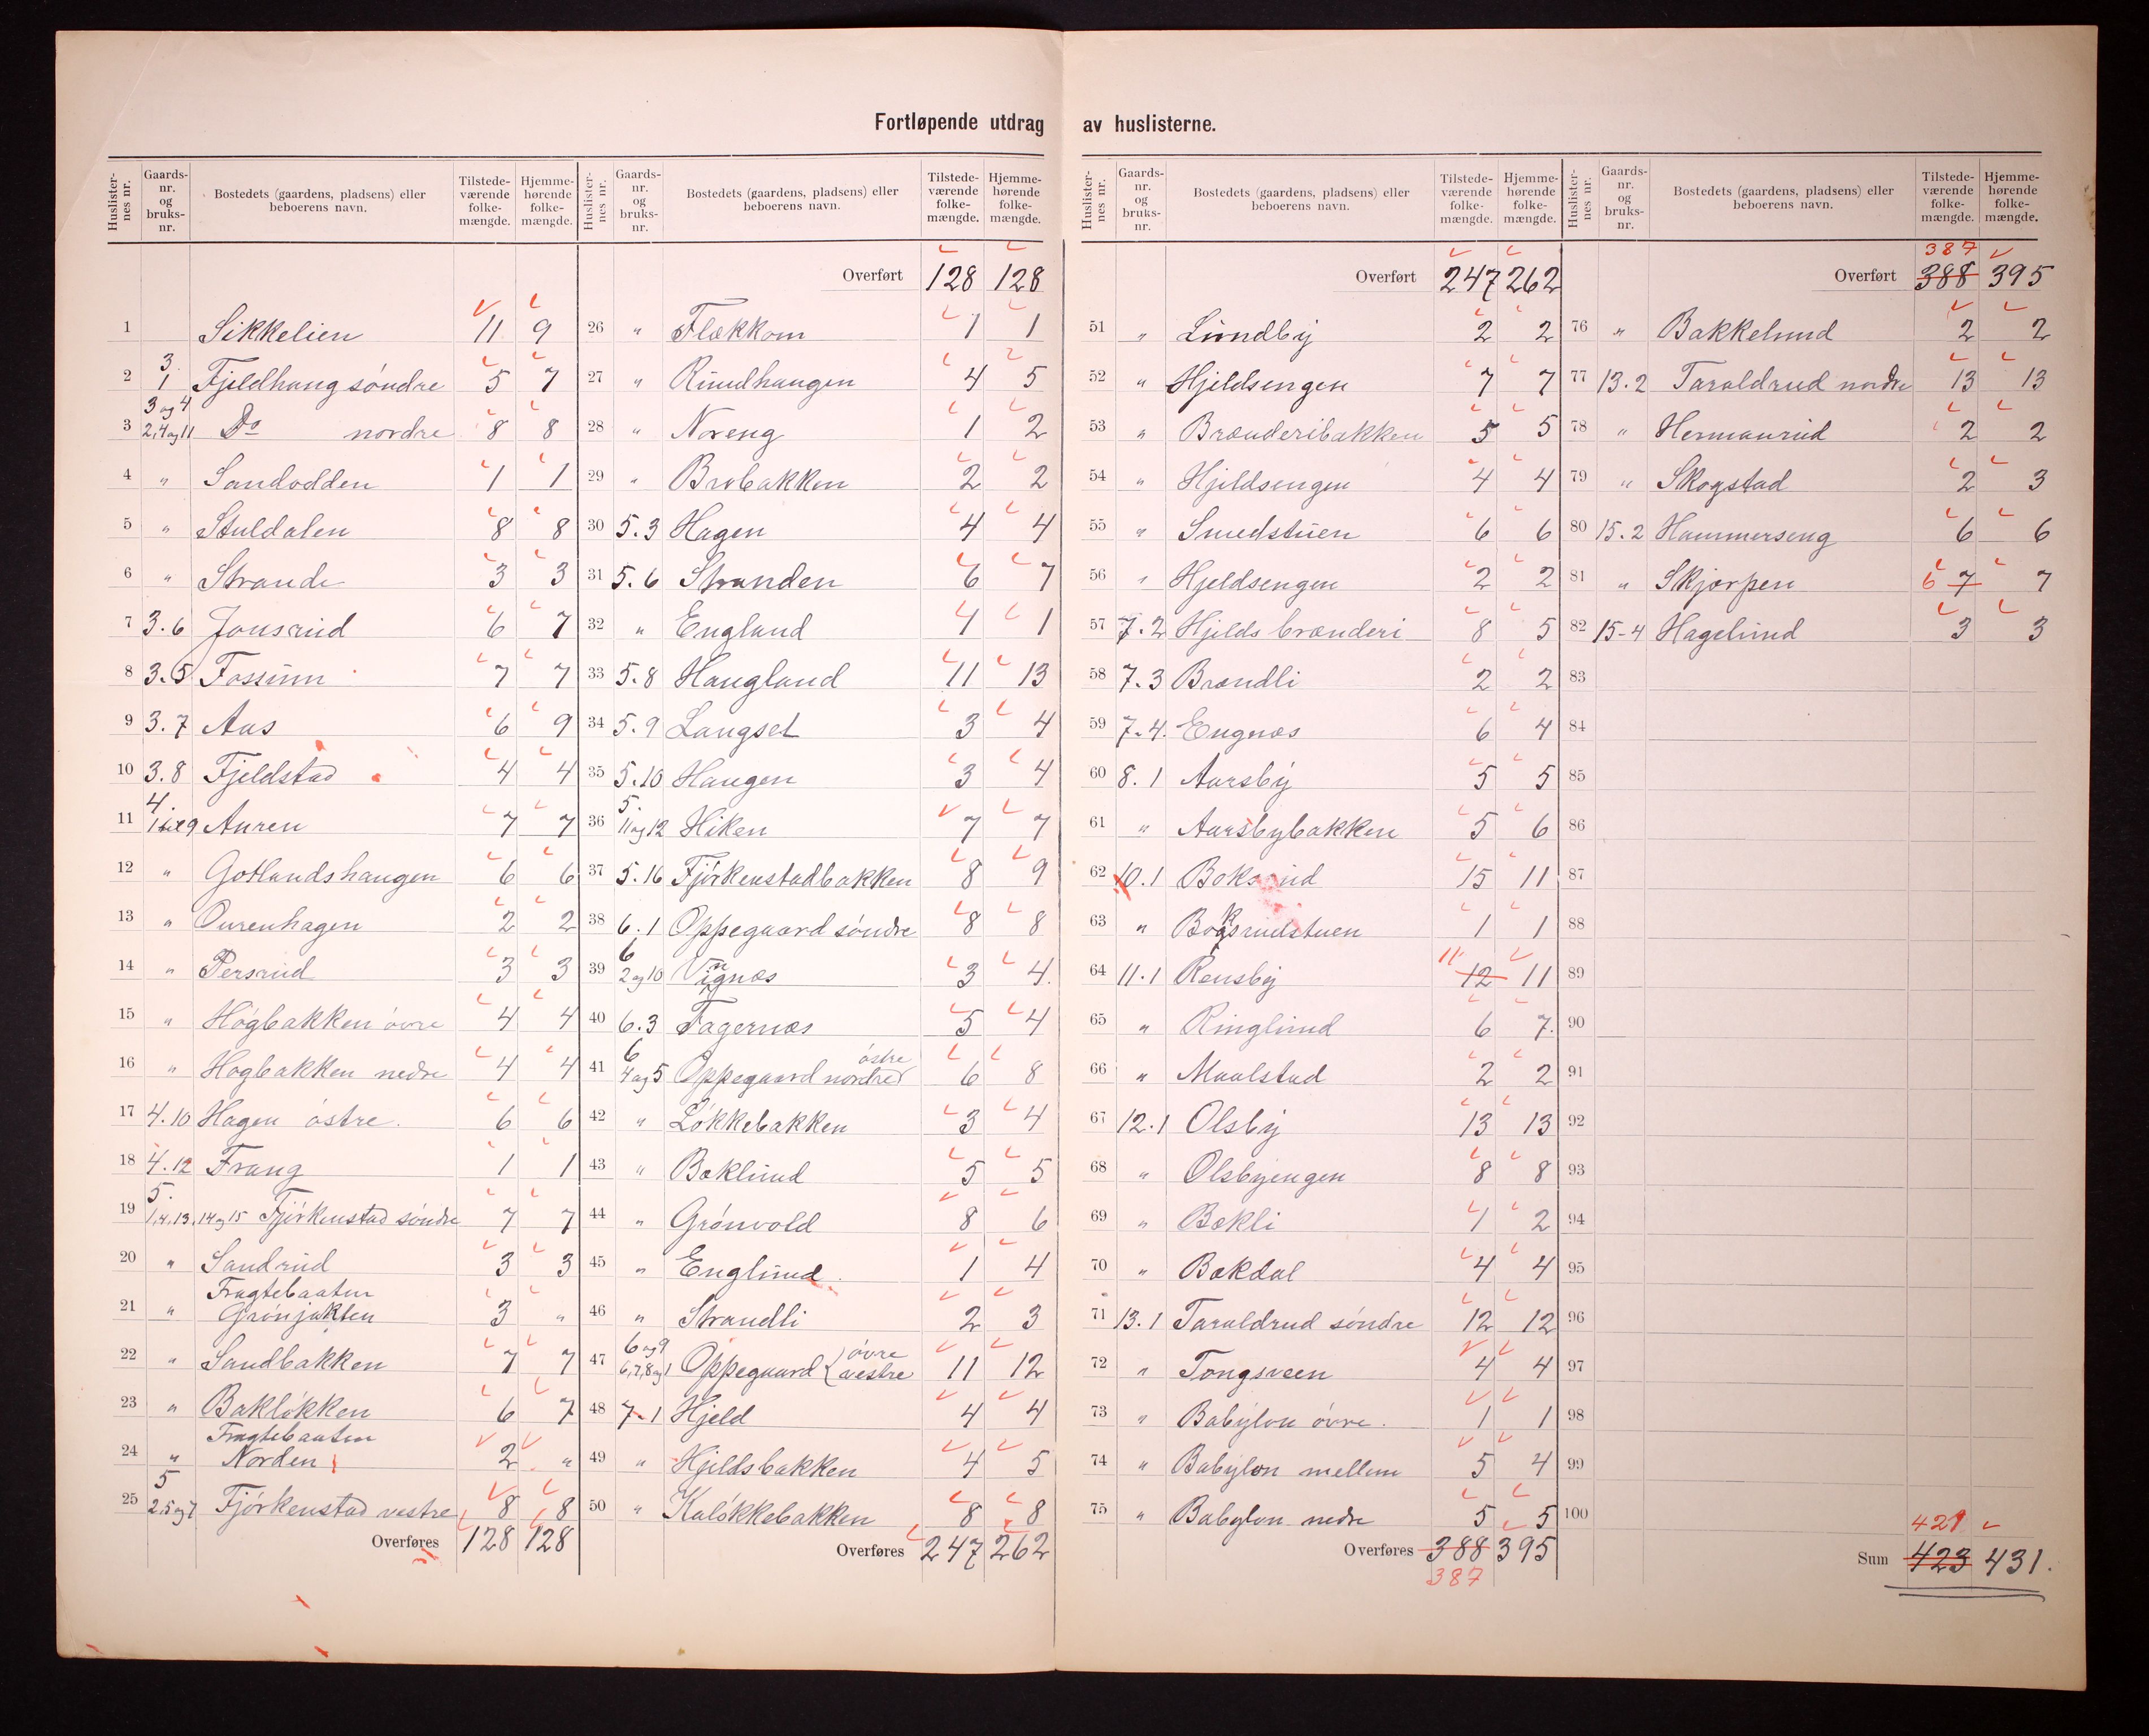 Fortløpende utdrag av huslisterne.
Huslisternes nr. Gaards-nr. og bruks-nr. Bostedets (gaardens, pladsens) eller beboerens navn. Tilstedeværende folkemængde. Hjemmehørende folkemængde.
1 Sikkelien 11 9
2 3/1 Fjeldhaug søndre 5 7
3 3 og 4 / 2,4 og 11 Do nordre 8 8
4 " Sandodden 1 1
5 " Stuldalen 8 8
6 " Strande 3 3
7 3.6 Jonsrud 6 7
8 3.5 Fossum 7 7
9 3.7 Aas 6 9
10 3.8 Fjeldstad 4 4
11 4. 1 til 9 Auren 7 7
12 " Gotlandshaugen 6 6
13 " Ourenhagen 2 2
14 " Persrud 3 3
15 " Høgbakken øvre 4 4
16 " Høgbakken nedre 4 4
17 4.10 Hagen østre. 6 6
18 4.12 Frang 1 1
19 5. 1,4,13,14 og 15 Fjørkenstad søndre 7 7
20 " Sandrud 3 3
21 " Fragtebaaten Grønjakten 3 "
22 " Sandbakken 7 7
23 " Bakløkken 6 7
24 " Fragtebaaten Norden 2 "
25 5 2.5 og 7 Fjørkenstad vestre 8 8
Overføres 128 128
Huslisternes nr. Gaards-nr. og bruks-nr. Bostedets (gaardens, pladsens) eller beboerens navn. Tilstedeværende folkemængde. Hjemmehørende folkemængde.
Overført 128 128
26 " Flækkom 1 1
27 " Rundhaugen 4 5
28 " Noreng 1 2
29 " Brobakken 2 2
30 5.3 Hagen 4 4
31 5.6 Stranden 6 7
32 " England 4 1
33 5.8 Haugland 11 13
34 5.9 Langset 3 4
35 5.10 Haugen 3 4
36 5. 11 og 12 Hiken 7 7
37 5.16 Fjørkenstadbakken 8 9
38 6.1 Oppegaard søndre 8 8
39 6 2 og 10 Vignæs 3 4
40 6.3 Fagernæs 5 4
41 6 4 og 5 Oppegaard nordre østre 6 8
42 " Løkkebakken 3 4
43 " Bæklund 5 5
44 " Grønvold 8 6
45 " Englund 1 4
46 " Strandli 2 3
47 6 og 9 6,7,8 og 1 Oppegaard øvre vestre 11 12
48 7.1 Hjeld 4 4
49 " Hjeldsbakken 4 5
50 " Kaløkkebakken 8 8
Overføres 247 262
Huslisternes nr. Gaards-nr. og bruks-nr. Bostedets (gaardens, pladsens) eller beboerens navn. Tilstedeværende folkemængde. Hjemmehørende folkemængde.
Overført 247 262
51 " Lundby 2 2
52 " Hjeldsengen 7 7
53 " Brænderibakken 5 5
54 " Hjeldsengen 4 4
55 " Smedstuen 6 6
56 " Hjeldsengen 2 2
57 7.2 Hjelds brænderi 8 5
58 7.3 Brændli 2 2
59 7.4. Engnæs 6 4
60 8.1 Aarsby 5 5
61 " Aarsbybakken 5 6
62 10.1 Boksrud 15 11
63 " Boksrudstuen 1 1
64 11.1 Rensby 11 12 11
65 " Ringlund 6 7.
66 " Maalstad 2 2
67 12.1 Olsby 13 13
68 " Olsbyengen 8 8
69 " Bækli 1 2
70 " Bækdal 4 4
71 13.1 Taraldrud søndre 12 12
72 " Tongsveen 4 4
73 " Babylon øvre. 1 1
74 " Babylon mellem 5 4
75 " Babylon nedre 5 5
Overføres 388 395
387
Huslisternes nr. Gaards-nr. og bruks-nr. Bostedets (gaardens, pladsens) eller beboerens navn. Tilstedeværende folkemængde. Hjemmehørende folkemængde.
387
Overført 388 395
76 " Bakkelund 2 2
77 13.2 Taraldrud nordre 13 13
78 " Hermanrud 2 2
79 " Skogstad 2 3
80 15.2 Hammerseng 6 6
81 " Skjærpen 6 7 7
82 15-4 Hagelund 3 3
83
84
85
86
87
88
89
90
91
92
93
94
95
96
97
98
99
100
421
Sum 423 431.